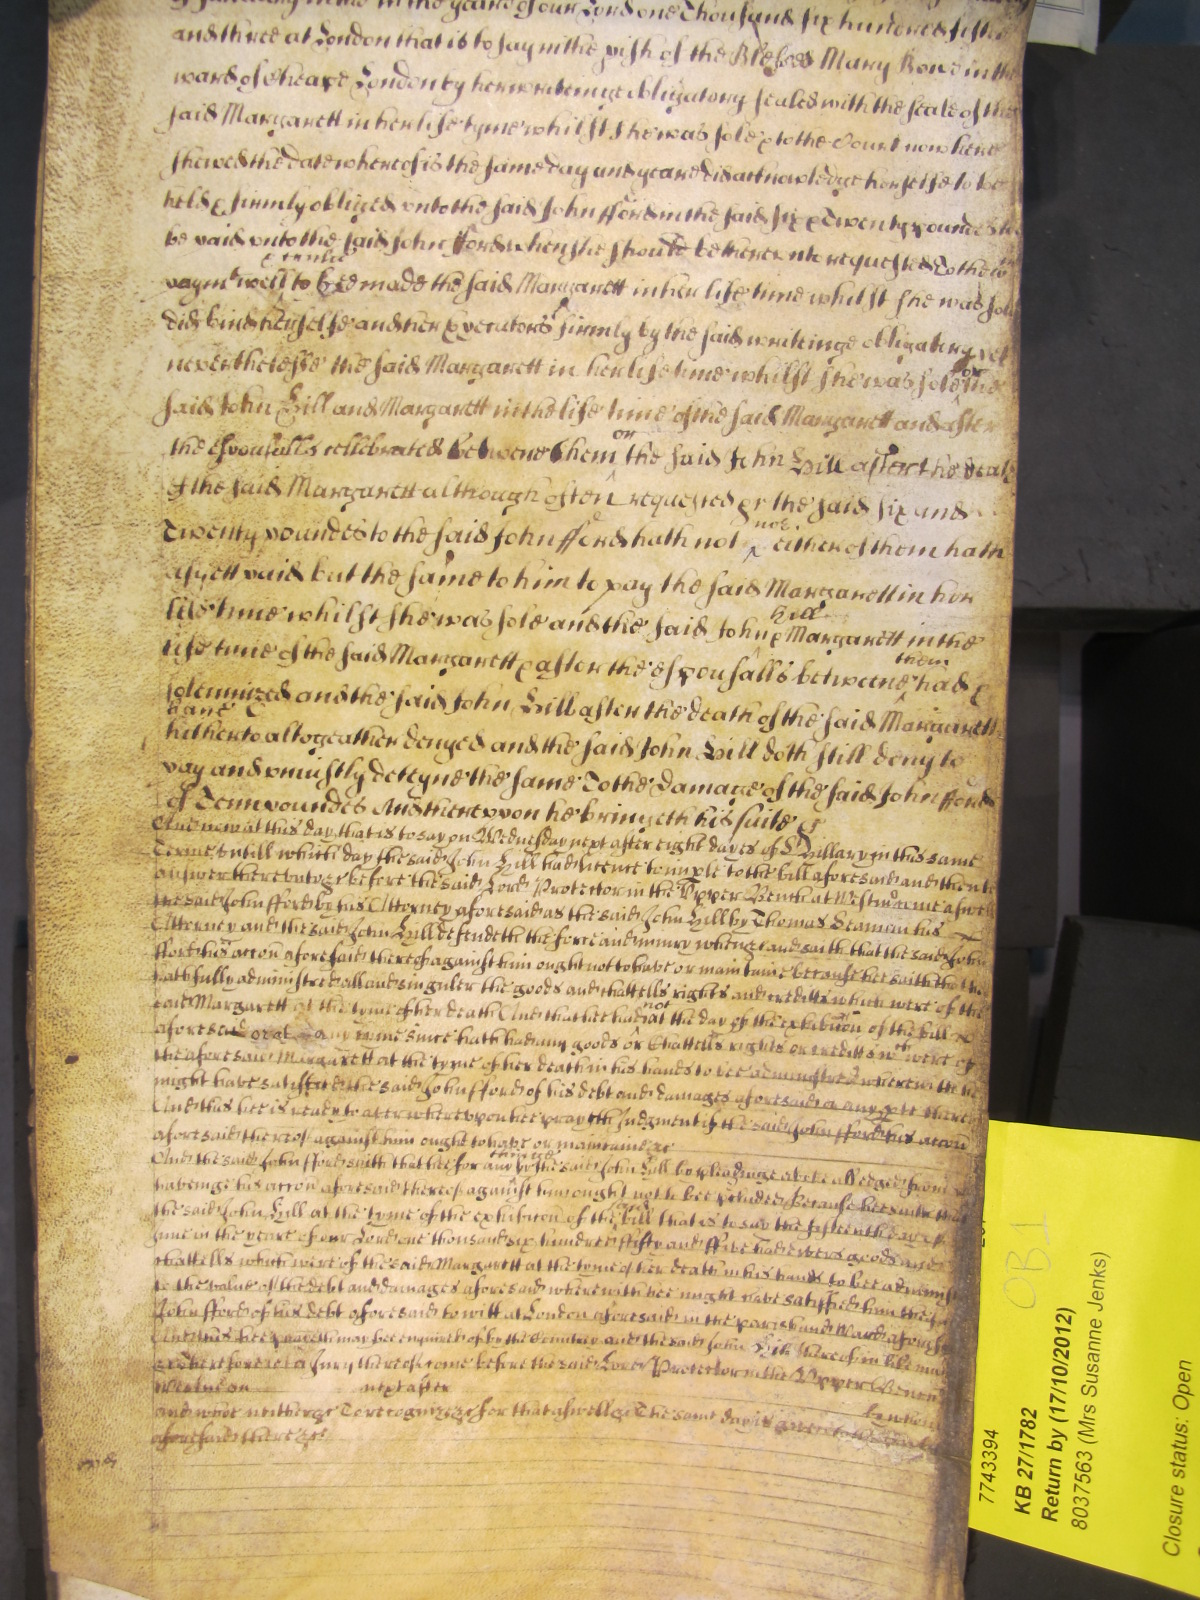 in the yeare of our Lord one Thousand six hundred fiftie
and three at London that is to say in the pish of the Blessed Mary Bowe in the
ward of Cheape London by her writeinge obligatory sealed with the seale of the
said Margarett in her life tyme whilst she was sole & to the Court now heere
shewed the date whereof is the same day and yeare did acknowledge her selfe to bee
held & firmly obliged vnto the said John fford in the said six & Twenty pounds to
be paid vnto the said John fford when she should be therevnto requested To the wch
paymt well & trulie to bee made the said Margarett in her life time whilst she was sole
did bind her selfe and her Executors firmly by the said writeinge obligatory yet
neverthelesse the said Margarett in her life time whilst she was sole or the
said John Hill and Margarett in the life time of the said Margarett and after
the espousalls cellebrated betweene them or the said John Hill after the death
of the said Margarett although often requested &c the said six and
Twenty poundes to the said John fford hath not nor either of them hath
as yett paid but the same to him to pay the said Margarett in her
life time whilst she was sole and the said John Hill & Margarett in the
life time of the said Margarett & after the espousalls betweene them had &
solemnized and the said John Hill after the death of the said Margarett
have hitherto altogeather denyed and the said John Hill doth still deny to
pay and uniustly deteyne the same To the Damage of the said John fford
of Tenn poundes And therevpon he bringeth his suite &c
And now at this day that is to say on Wednesday next after eight dayes of St Hillary in this same
Terme vntill which day the said John Hill had licence to imple to the bill aforesaid and then to
answer there before the said Lord Protector in the Vpper Bench at Westm came aswell
the said John fford by his Attorney aforesaid as the said John Hill by Thomas Seaman his
Attorney and the said John Hill defendeth the force and iniury when &c and saith that the said John
fford his accon aforesaid thereof against him ought not to have or maintaine because hee saith that hee
hath fully administred all and singuler the goods and chattells rights and creditts which were of the
said Margarett at the tyme of her death And that hee had not at the day of the exhibicon of the bill
aforesaid or at any tyme since hath had any goods or Chattells rights or creditts wch were of
the aforesaid Margarett at the tyme of her death in his hands to bee administred wherewith hee
might have satisfied the said John fford of his debt and damages aforesaid or any pte thereof
And this hee is ready to aver wherevpon hee prayeth Judgment if the said John fford his accon
aforesaid thereof against him ought to have or maintaine &c
And the said John fford saith that hee for any thinge by the said John Hill by pleadinge above alledged from
haveinge his accon aforesaid thereof against him ought not to bee precluded Because hee saith that
the said John Hill at the tyme of the exhibicon of the bill that is to say the fifteenth day of
June in the yeare of our Lord one thousand six hundred fifty and ffive had divers goods and
chattells which were of the said Margarett at the tyme of her death in his hands to bee administred
to the value of the debt and damages aforesaid wherewith hee might have satisfied him the said
John fford of his debt aforesaid to witt at London aforesaid in the parish and Ward aforesaid
And this hee prayeth may bee enquired of by the Country and the said John Hill thereof in like manner
&c Therefore let a Jury thereof come before the said Lord Protector in the Vpper Bench
Westm on next after by whom
and who neither &c To recognize &c for that aswell &c The same day is given to the
aforesaid there &c
7743394
KB 27/1782
Return by (17/10/2012)
8037563 (Mrs Susanne Jenks)
Closure status: Open
OB 1